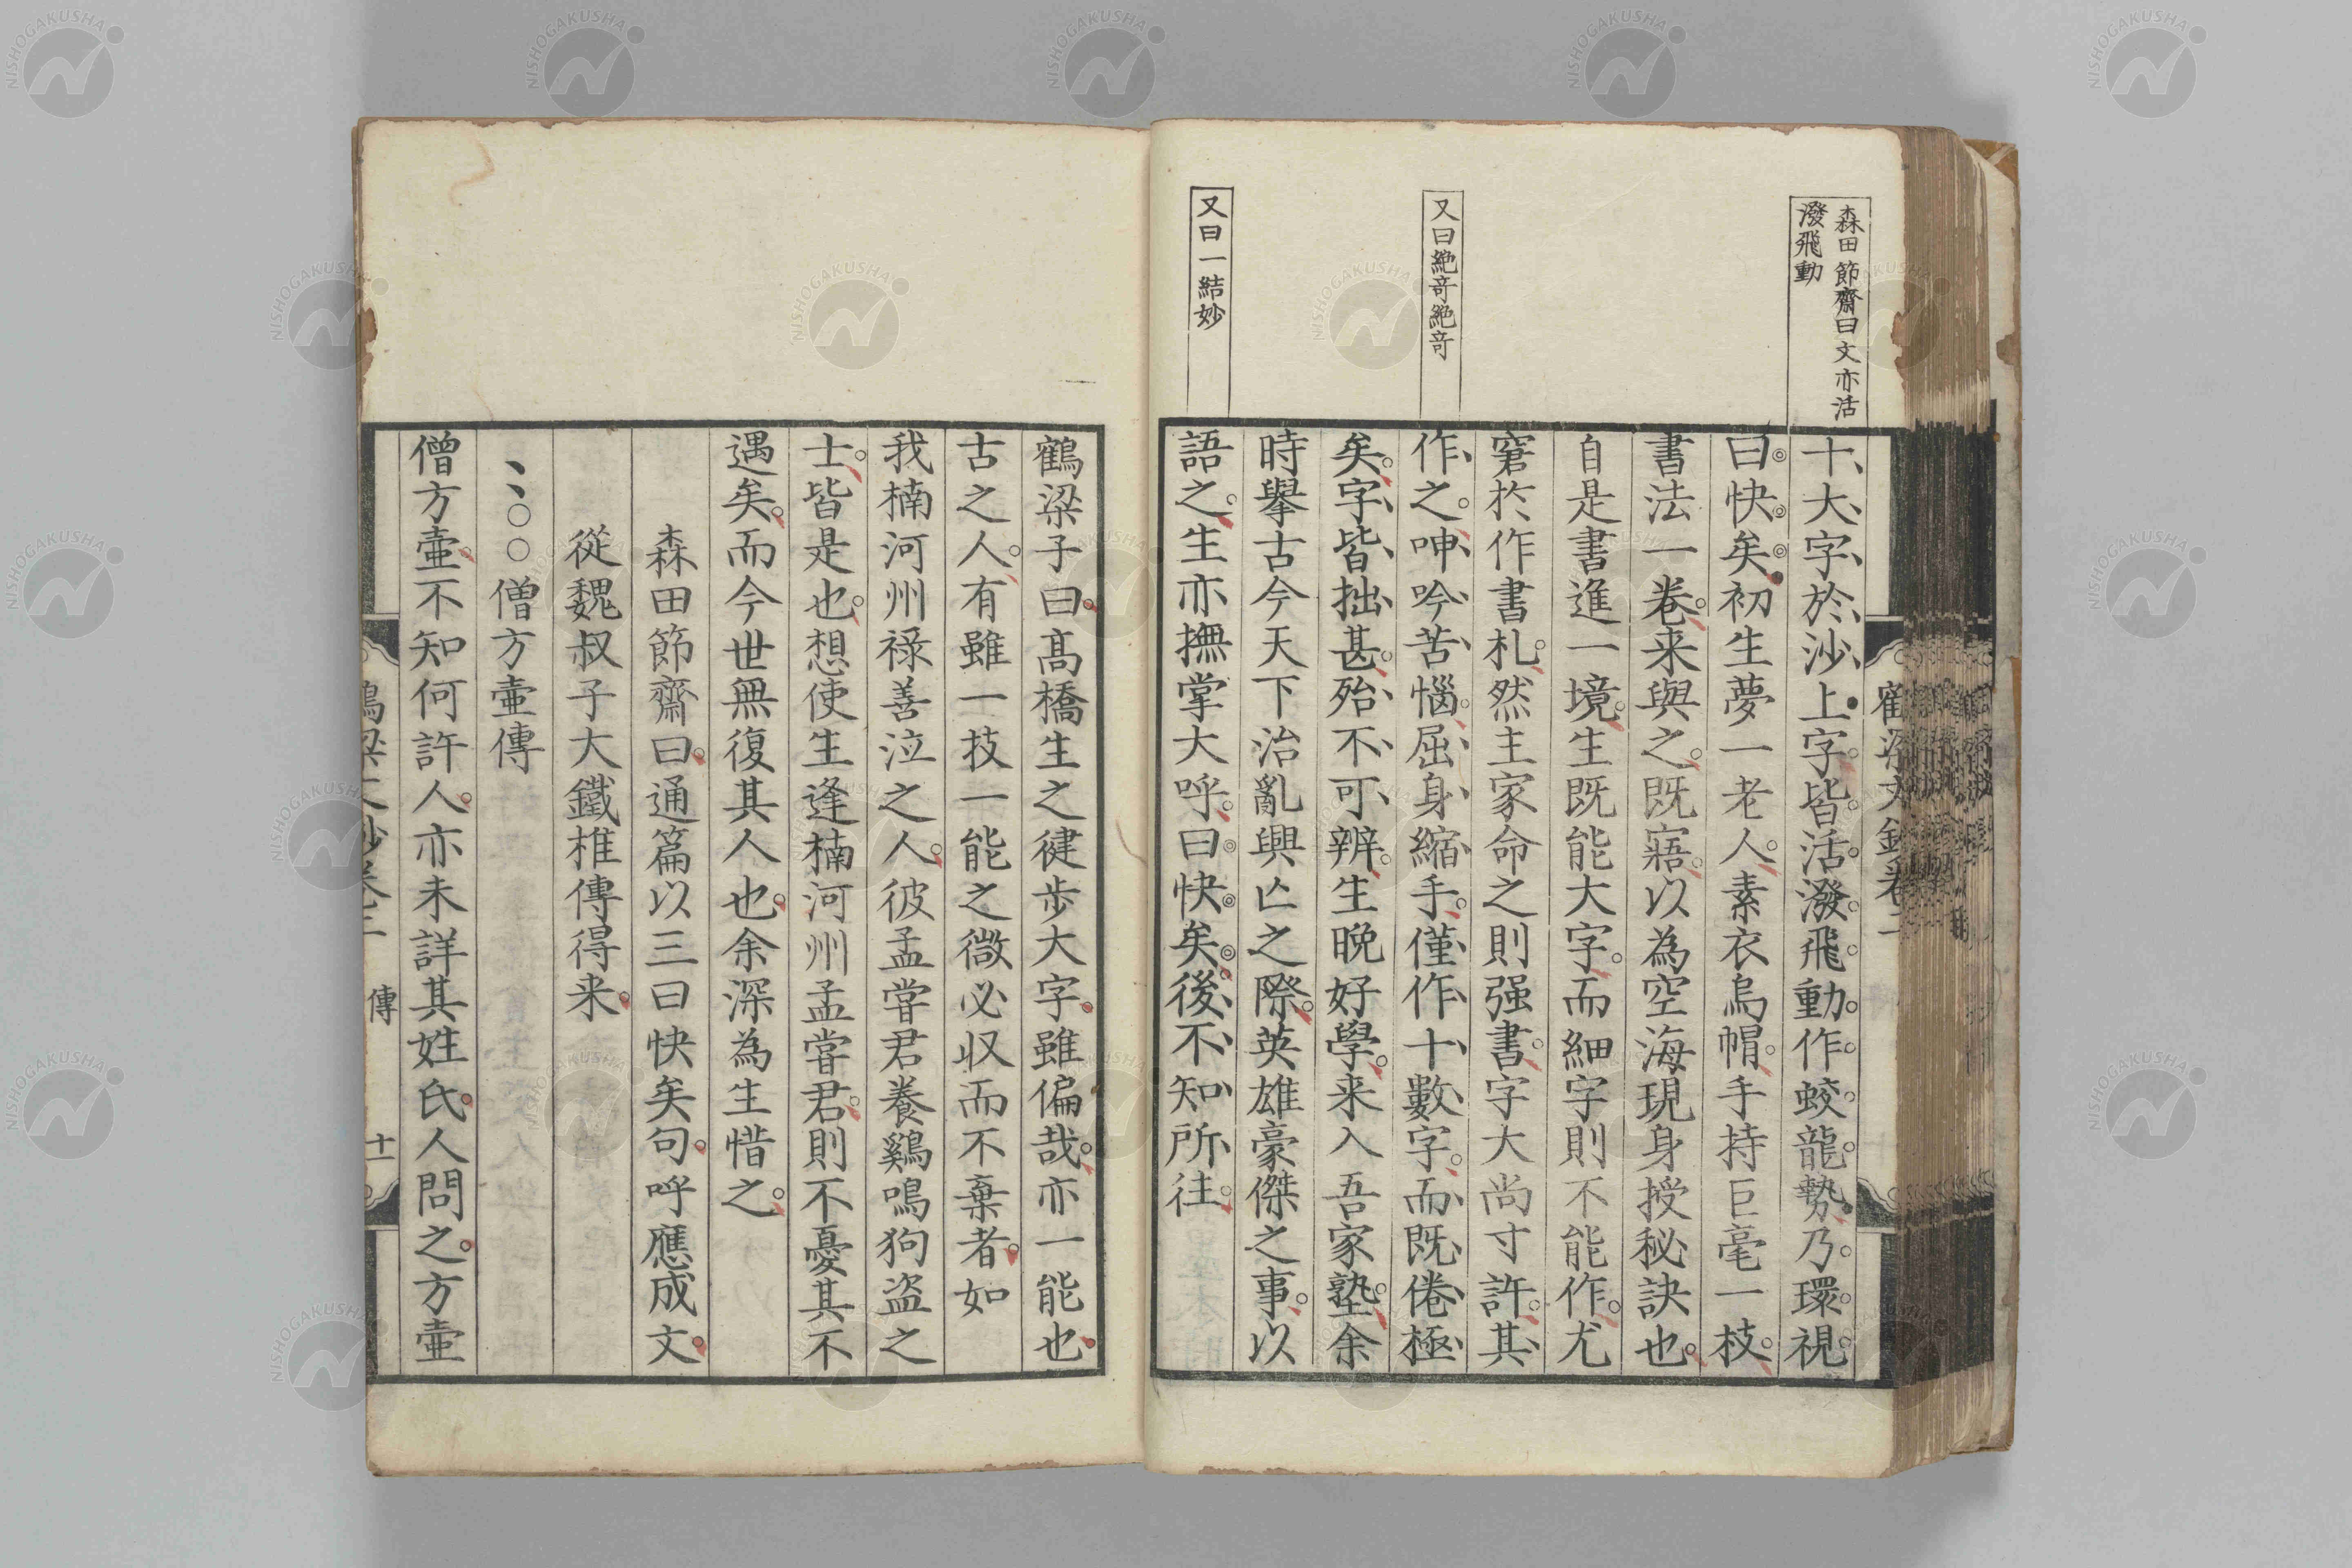 森田節齋曰文亦活
潑飛動
又曰絶竒絶竒
又曰一結妙
十大字於沙上字皆活潑飛動作蛟龍勢乃環視
曰快矣初生夢一老人素衣烏帽手持巨毫一枝
書法一卷来與之既寤以為空海現身授秘訣也
自是書進一境生既能大字而細字則不能作尤
窘於作書札然主家命之則强書字大尚寸許其
作之呻吟苦惱屈身縮手僅作十數字而既倦極
矣字皆拙甚殆不可辨生晩好學来入吾家塾余
時擧古今天下治亂興亡之際英雄豪傑之事以
語之生亦撫掌大呼曰快矣後不知所往
鶴梁子曰髙橋生之徤歩大字雖偏哉亦一能也
古之人有雖一技一能之微必収而不棄者如
我楠河州禄善泣之人彼孟嘗君養鷄鳴狗盗之
士皆是也想使生逢楠河州孟嘗君則不憂其不
遇矣而今世無復其人也余深為生惜之
森田節齋曰通篇以三曰快矣句呼應成文
從魏叔子大鐵椎傳得来
丶丶〇〇僧方壷傳
僧方壷不知何許人亦未詳其姓氏人問之方壷
鶴梁文鈔卷二
傳
十一
NISHOGAKUSHA